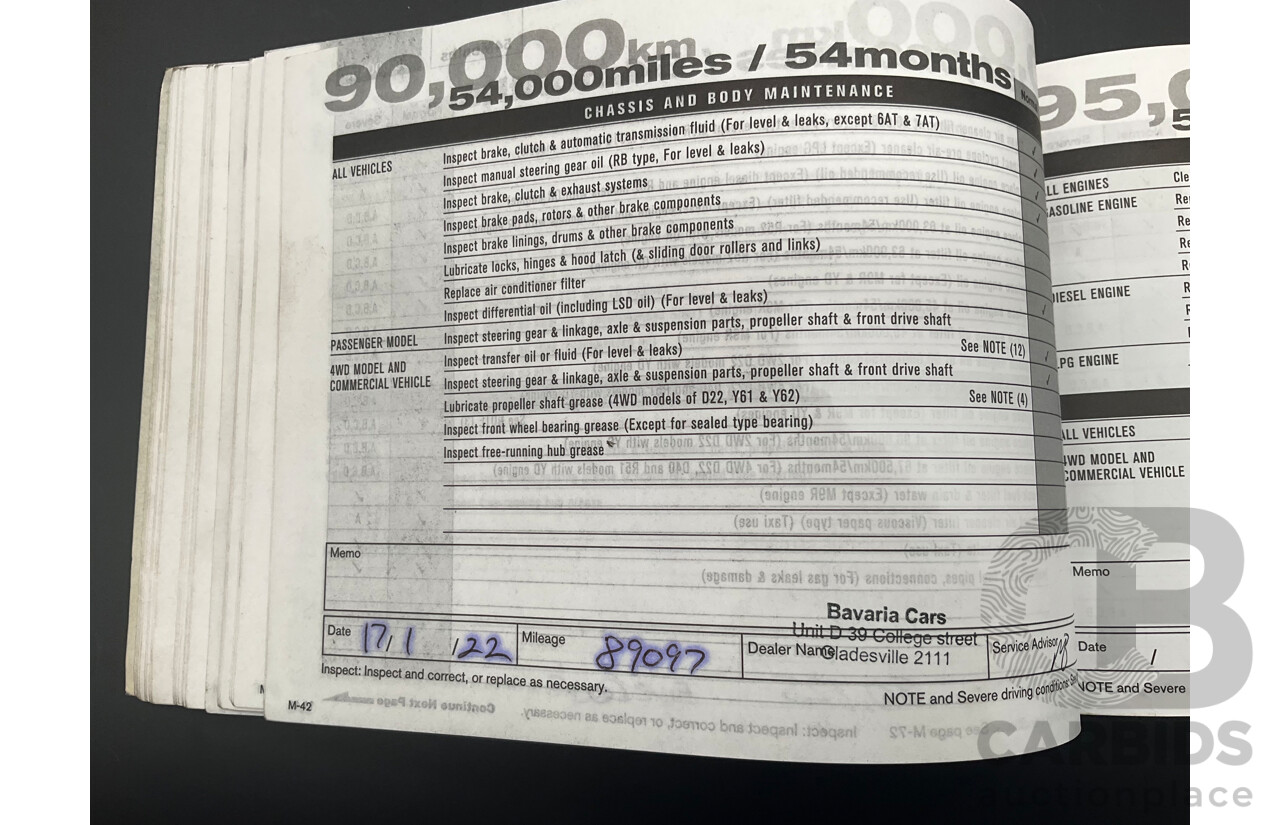 90,000km
54,000miles / 54months
CHASSIS AND BODY MAINTENANCE
ALL VEHICLES
Inspect brake, clutch & automatic transmission fluid (For level & leaks, except 6AT & 7AT)
Inspect manual steering gear oil (RB type, For level & leaks)
Inspect brake, clutch & exhaust systems
Inspect brake pads, rotors & other brake components
Inspect brake linings, drums & other brake components
Lubricate locks, hinges & hood latch (& sliding door rollers and links)
Replace air conditioner filter
Inspect differential oil (including LSD oil) (For level & leaks)
PASSENGER MODEL
Inspect steering gear & linkage, axle & suspension parts, propeller shaft & front drive shaft
4WD MODEL AND
COMMERCIAL VEHICLE
Inspect transfer oil or fluid (For level & leaks) See NOTE (12)
Inspect steering gear & linkage, axle & suspension parts, propeller shaft & front drive shaft
Lubricate propeller shaft grease (4WD models of D22, Y61 & Y62) See NOTE (4)
Inspect front wheel bearing grease (Except for sealed type bearing)
Inspect free-running hub grease
Memo
Date 17/1/22
Mileage 89097
Dealer Name
Bavaria Cars
Unit D 39 College street
Gladesville 2111
Service Advisor
Inspect: Inspect and correct, or replace as necessary.
NOTE and Severe driving conditions
M-42
95,0
ALL ENGINES
GASOLINE ENGINE
DIESEL ENGINE
LPG ENGINE
ALL VEHICLES
4WD MODEL AND
COMMERCIAL VEHICLE
Memo
Date /
NOTE and Severe
CARBIDS
auctionplace